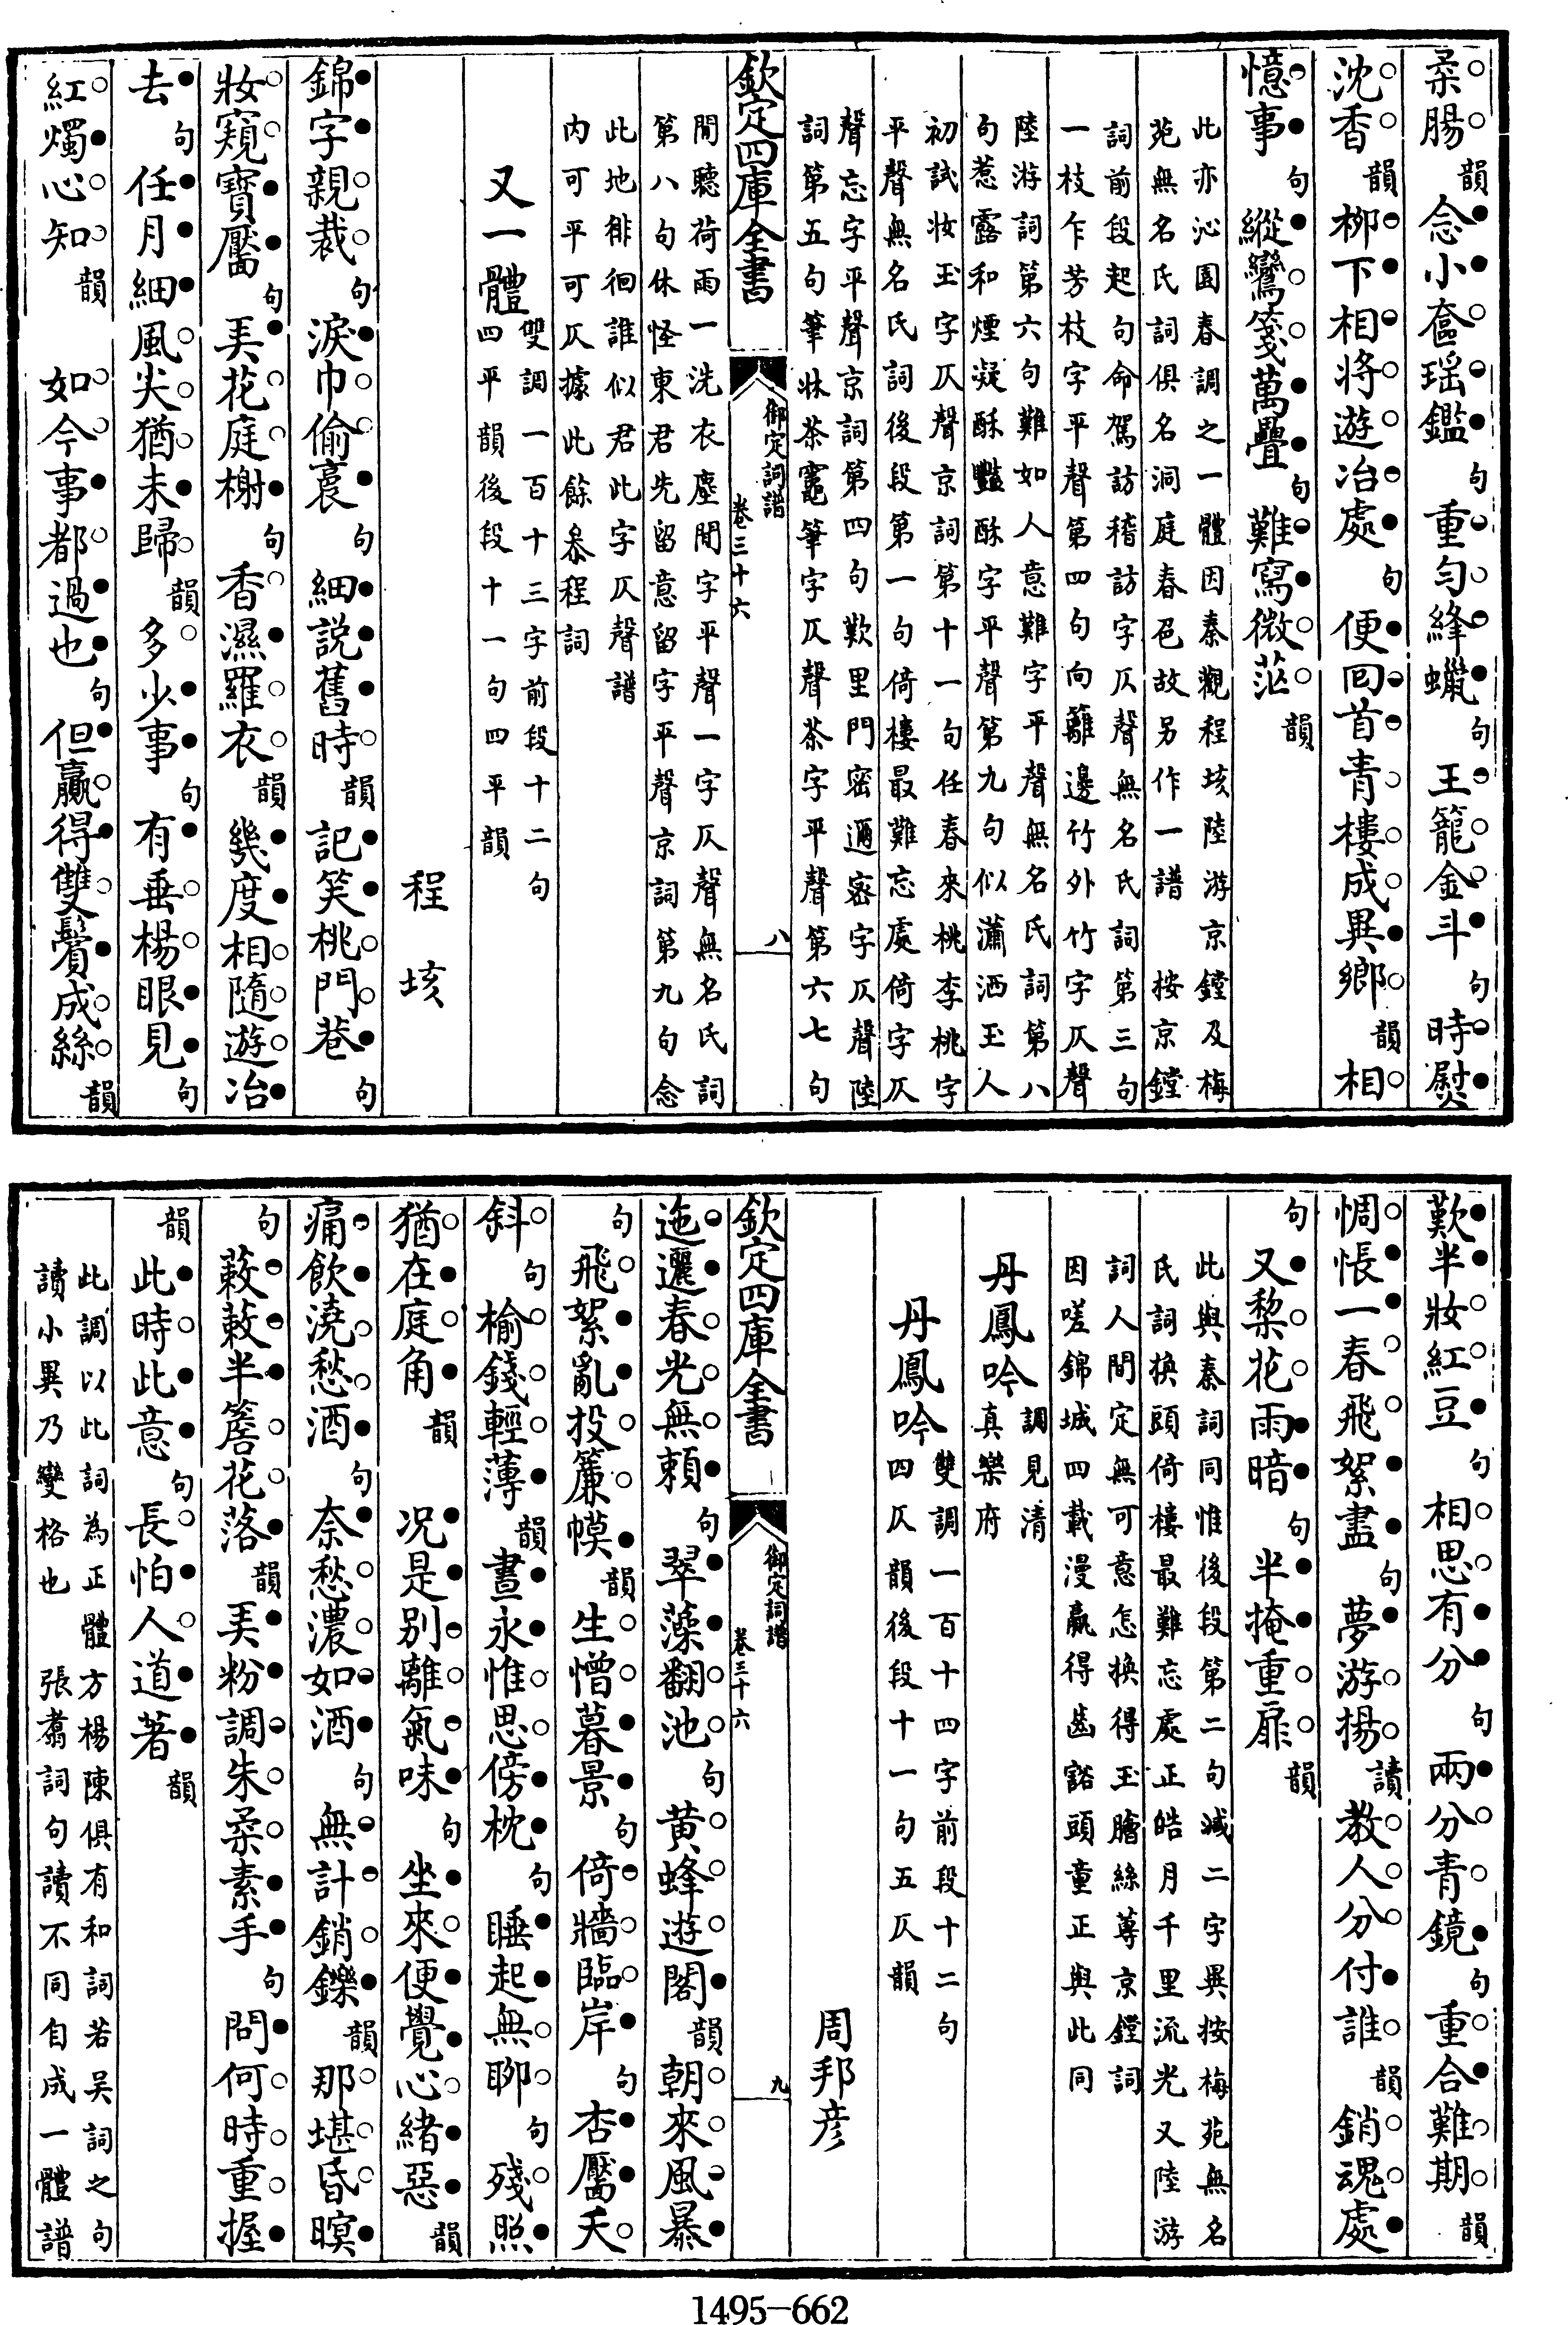 柔腸韻念小奩瑤鑑句重勻絳蠟句王籠金斗句時熨
沈香韻柳下相將遊冶處句便回首青樓成異鄉韻相
憶事句縱鸞箋萬疊句難寫微茫韻
此亦沁園春調之一體因秦觀程垓陸游京鏜及梅
苑無名氏詞俱名洞庭春色故另作一譜　按京鏜
詞前段起句命駕訪稽訪字仄聲無名氏詞第三句
一枝乍芳枝字平聲第四句向籬邊竹外竹字仄聲
陸游詞第六句難如人意難字平聲無名氏詞第八
句惹露和煙凝酥豔酥字平聲第九句似瀟洒玉人
初試妝玉字仄聲京詞第十一句任春來桃李桃字
平聲無名氏詞後段第一句倚樓最難忘處倚字仄
聲忘字平聲京詞第四句歎里門密邇密字仄聲陸
詞第五句筆牀茶竈筆字仄聲茶字平聲第六七句
欽定四庫全書
御定詞譜
卷三十六
八
閒聽荷雨一洗衣塵閒字平聲一字仄聲無名氏詞
第八句休怪東君先留意留字平聲京詞第九句念
此地徘徊誰似君此字仄聲譜
內可平可仄據此餘叅程詞
又一體雙調一百十三字前段十二句
四平韻後段十一句四平韻
程垓
錦字親裁句淚巾偷裛句細說舊時韻記笑桃門巷句
妝窺寶靨句弄花庭榭句香濕羅衣韻幾度相隨遊冶
去句任月細風尖猶未歸韻多少事句有垂楊眼見句
紅燭心知韻　如今事都過也句但贏得雙鬢成絲韻
歎半妝紅豆句相思有分句兩分青鏡句重合難期韻
惆悵一春飛絮盡句夢游揚讀教人分付誰韻銷魂處
句又棃花雨暗句半掩重扉韻
此與秦詞同惟後段第二句減二字異按梅苑無名
氏詞換頭倚樓最難忘處正皓月千里流光又陸游
詞人間定無可意怎換得玉鱠絲蓴京鏜詞
因嗟錦城四載漫贏得齒豁頭童正與此同
丹鳳吟調見清
真樂府
丹鳳吟雙調一百十四字前段十二句
四仄韻後段十一句五仄韻
周邦彦
欽定四庫全書
御定詞譜
卷三十六
九
迤邐春光無賴句翠藻翻池句黃蜂遊閣韻朝來風暴
句飛絮亂投簾幙韻生憎暮景句倚牆臨岸句杏靨夭
斜句榆錢輕薄韻晝永惟思傍枕句睡起無聊句殘照
猶在庭角韻　况是别離氣味句坐來便覺心緒惡韻
痛飲澆愁酒句奈愁濃如酒句無計銷鑠韻那堪昏暝
句蔌蔌半簷花落韻弄粉調朱柔素手句問何時重握
韻此時此意句長怕人道著韻
此調以此詞為正體方楊陳俱有和詞若吳詞之句
讀小異乃變格也　張翥詞句讀不同自成一體譜
1495-662